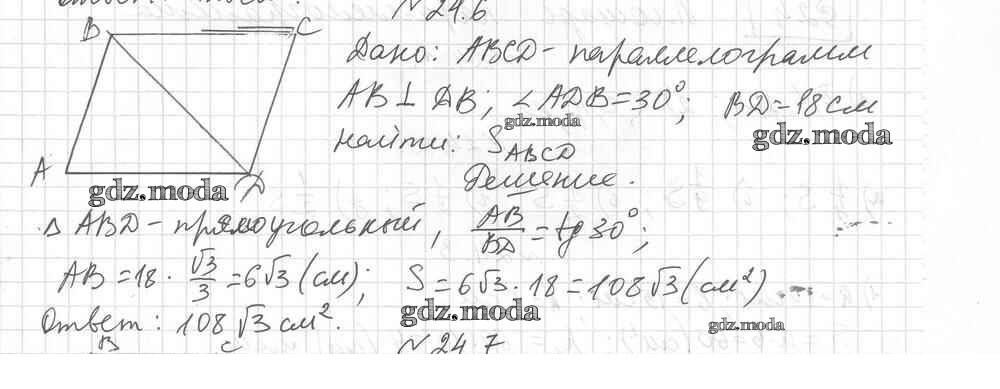 № 24.6
B C
Дано: ABCD - параллелограмм
AB ⊥ DB; ∠ADB = 30°; BD = 18 см
gdz.moda
gdz.moda
Найти: S_ABCD
A D
gdz.moda
Решение.
Δ ABD - прямоугольный, AB/BD = tg 30°;
AB = 18 · √3/3 = 6√3 (см); S = 6√3 · 18 = 108√3 (см²)
gdz.moda
gdz.moda
Ответ: 108√3 см².
B C № 24.7